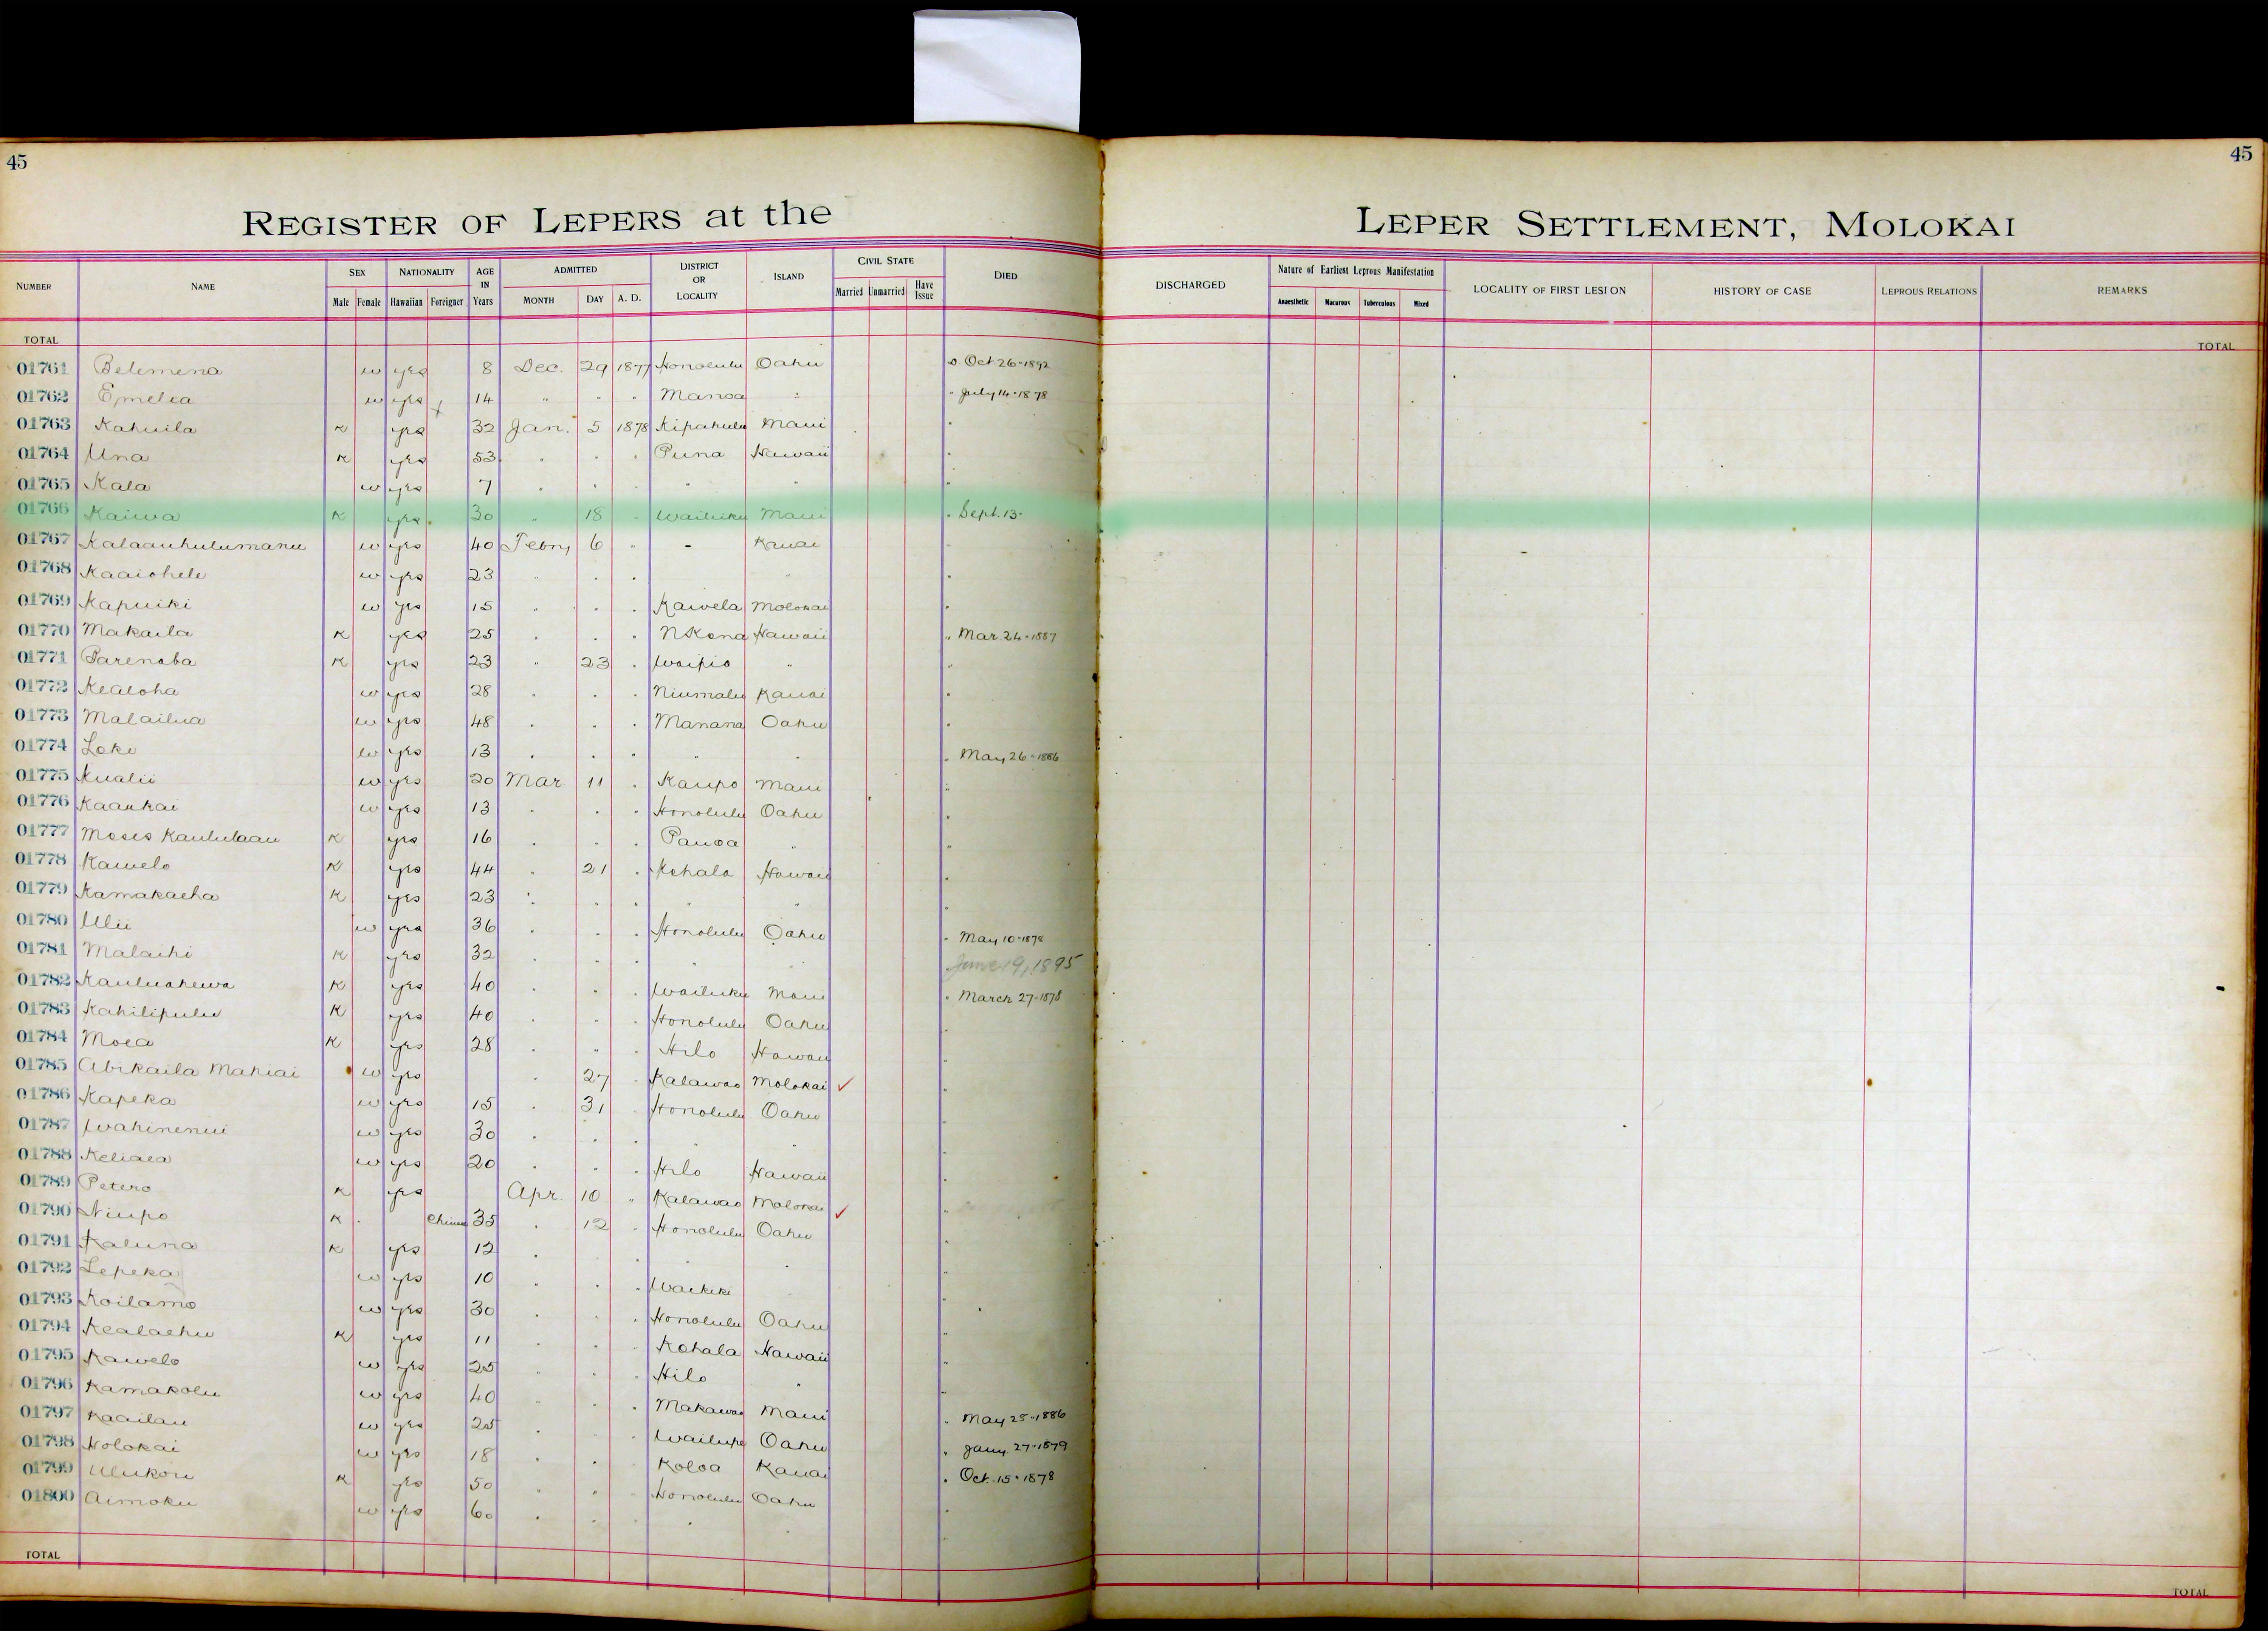 45
45
REGISTER OF LEPERS at the LEPER SETTLEMENT, MOLOKAI
NUMBER NAME SEX NATIONALITY AGE IN Years ADMITTED DISTRICT OR LOCALITY ISLAND CIVIL STATE DIED DISCHARGED Nature of Earliest Leprous Manifestation LOCALITY OF FIRST LESION HISTORY OF CASE LEPROUS RELATIONS REMARKS
Male Female Hawaiian Foreigner MONTH DAY A. D. Married Unmarried Have Issue Anaesthetic Macurous Tuberculous Mixed
TOTAL TOTAL
01761 Belemena w yes 8 Dec. 29 1877 Honolulu Oahu D. Oct 26-1892
01762 Emelia w yes 14 " " " Manoa " " July 14-1878
01763 Kahuila K yes 32 Jan. 5 1878 Kipahulu Maui "
01764 Una K yes 53 " " " Puna Hawaii "
01765 Kala w yes 7 " " " " " "
01766 Kaiwa K yes 30 " 18 " Wailuku Maui " Sept. 13-
01767 Kalaauhulumanu w yes 40 Febry 6 " - Kauai
01768 Kaaiohele w yes 23 " " " " "
01769 Kapuiki w yes 15 " " " Kawela Molokai "
01770 Makaila K yes 25 " " " N Kona Hawaii " Mar 24-1887
01771 Parenaba K yes 23 " 23 " Waipio " "
01772 Kealoha w yes 28 " " " Niumalu Kauai "
01773 Malailua w yes 48 " " " Manana Oahu "
01774 Loke w yes 13 " " " " " " May 26-1886
01775 Kualii w yes 20 Mar 11 " Kaupo Maui "
01776 Kaaukai w yes 13 " " " Honolulu Oahu "
01777 Moses Kaululaau K yes 16 " " " Pauoa " "
01778 Kawelo K yes 44 " 21 " Kohala Hawaii "
01779 Kamakaeha K yes 23 " " " " " "
01780 Ulii w yes 36 " " " Honolulu Oahu " May 10-1878
01781 Malaihi K yes 32 " " " " " June 19, 1895
01782 Kauluahewa K yes 40 " " " Wailuku Maui " March 27-1878
01783 Kahilipulu K yes 40 " " " Honolulu Oahu "
01784 Moea K yes 28 " " " Hilo Hawaii "
01785 Abikaila Mahiai w yes " 27 " Kalawao Molokai ✓ "
01786 Kapeka w yes 15 " 31 " Honolulu Oahu "
01787 Wahinenui w yes 30 " " " " " "
01788 Keliaea w yes 20 " " " Hilo Hawaii "
01789 Petero K yes Apr. 10 " Kalawao Molokai ✓ "
01790 Niupo K Chinese 35 " 12 " Honolulu Oahu "
01791 Kaluna K yes 12 " " " "
01792 Lepeka w yes 10 " " " Waikiki "
01793 Koilamo w yes 30 " " " Honolulu Oahu "
01794 Kealaehu K yes 11 " " " Kohala Hawaii "
01795 Kawelo w yes 25 " " " Hilo " "
01796 Kamakolu w yes 40 " " " Makawao Maui " May 25-1886
01797 Kaailau w yes 25 " " " Wailupe Oahu " Jany. 27-1879
01798 Holokai w yes 18 " " " Koloa Kauai " Oct. 15-1878
01799 Ulukou K yes 50 " " " Honolulu Oahu "
01800 Aimoku w yes 60 " " " " "
TOTAL TOTAL